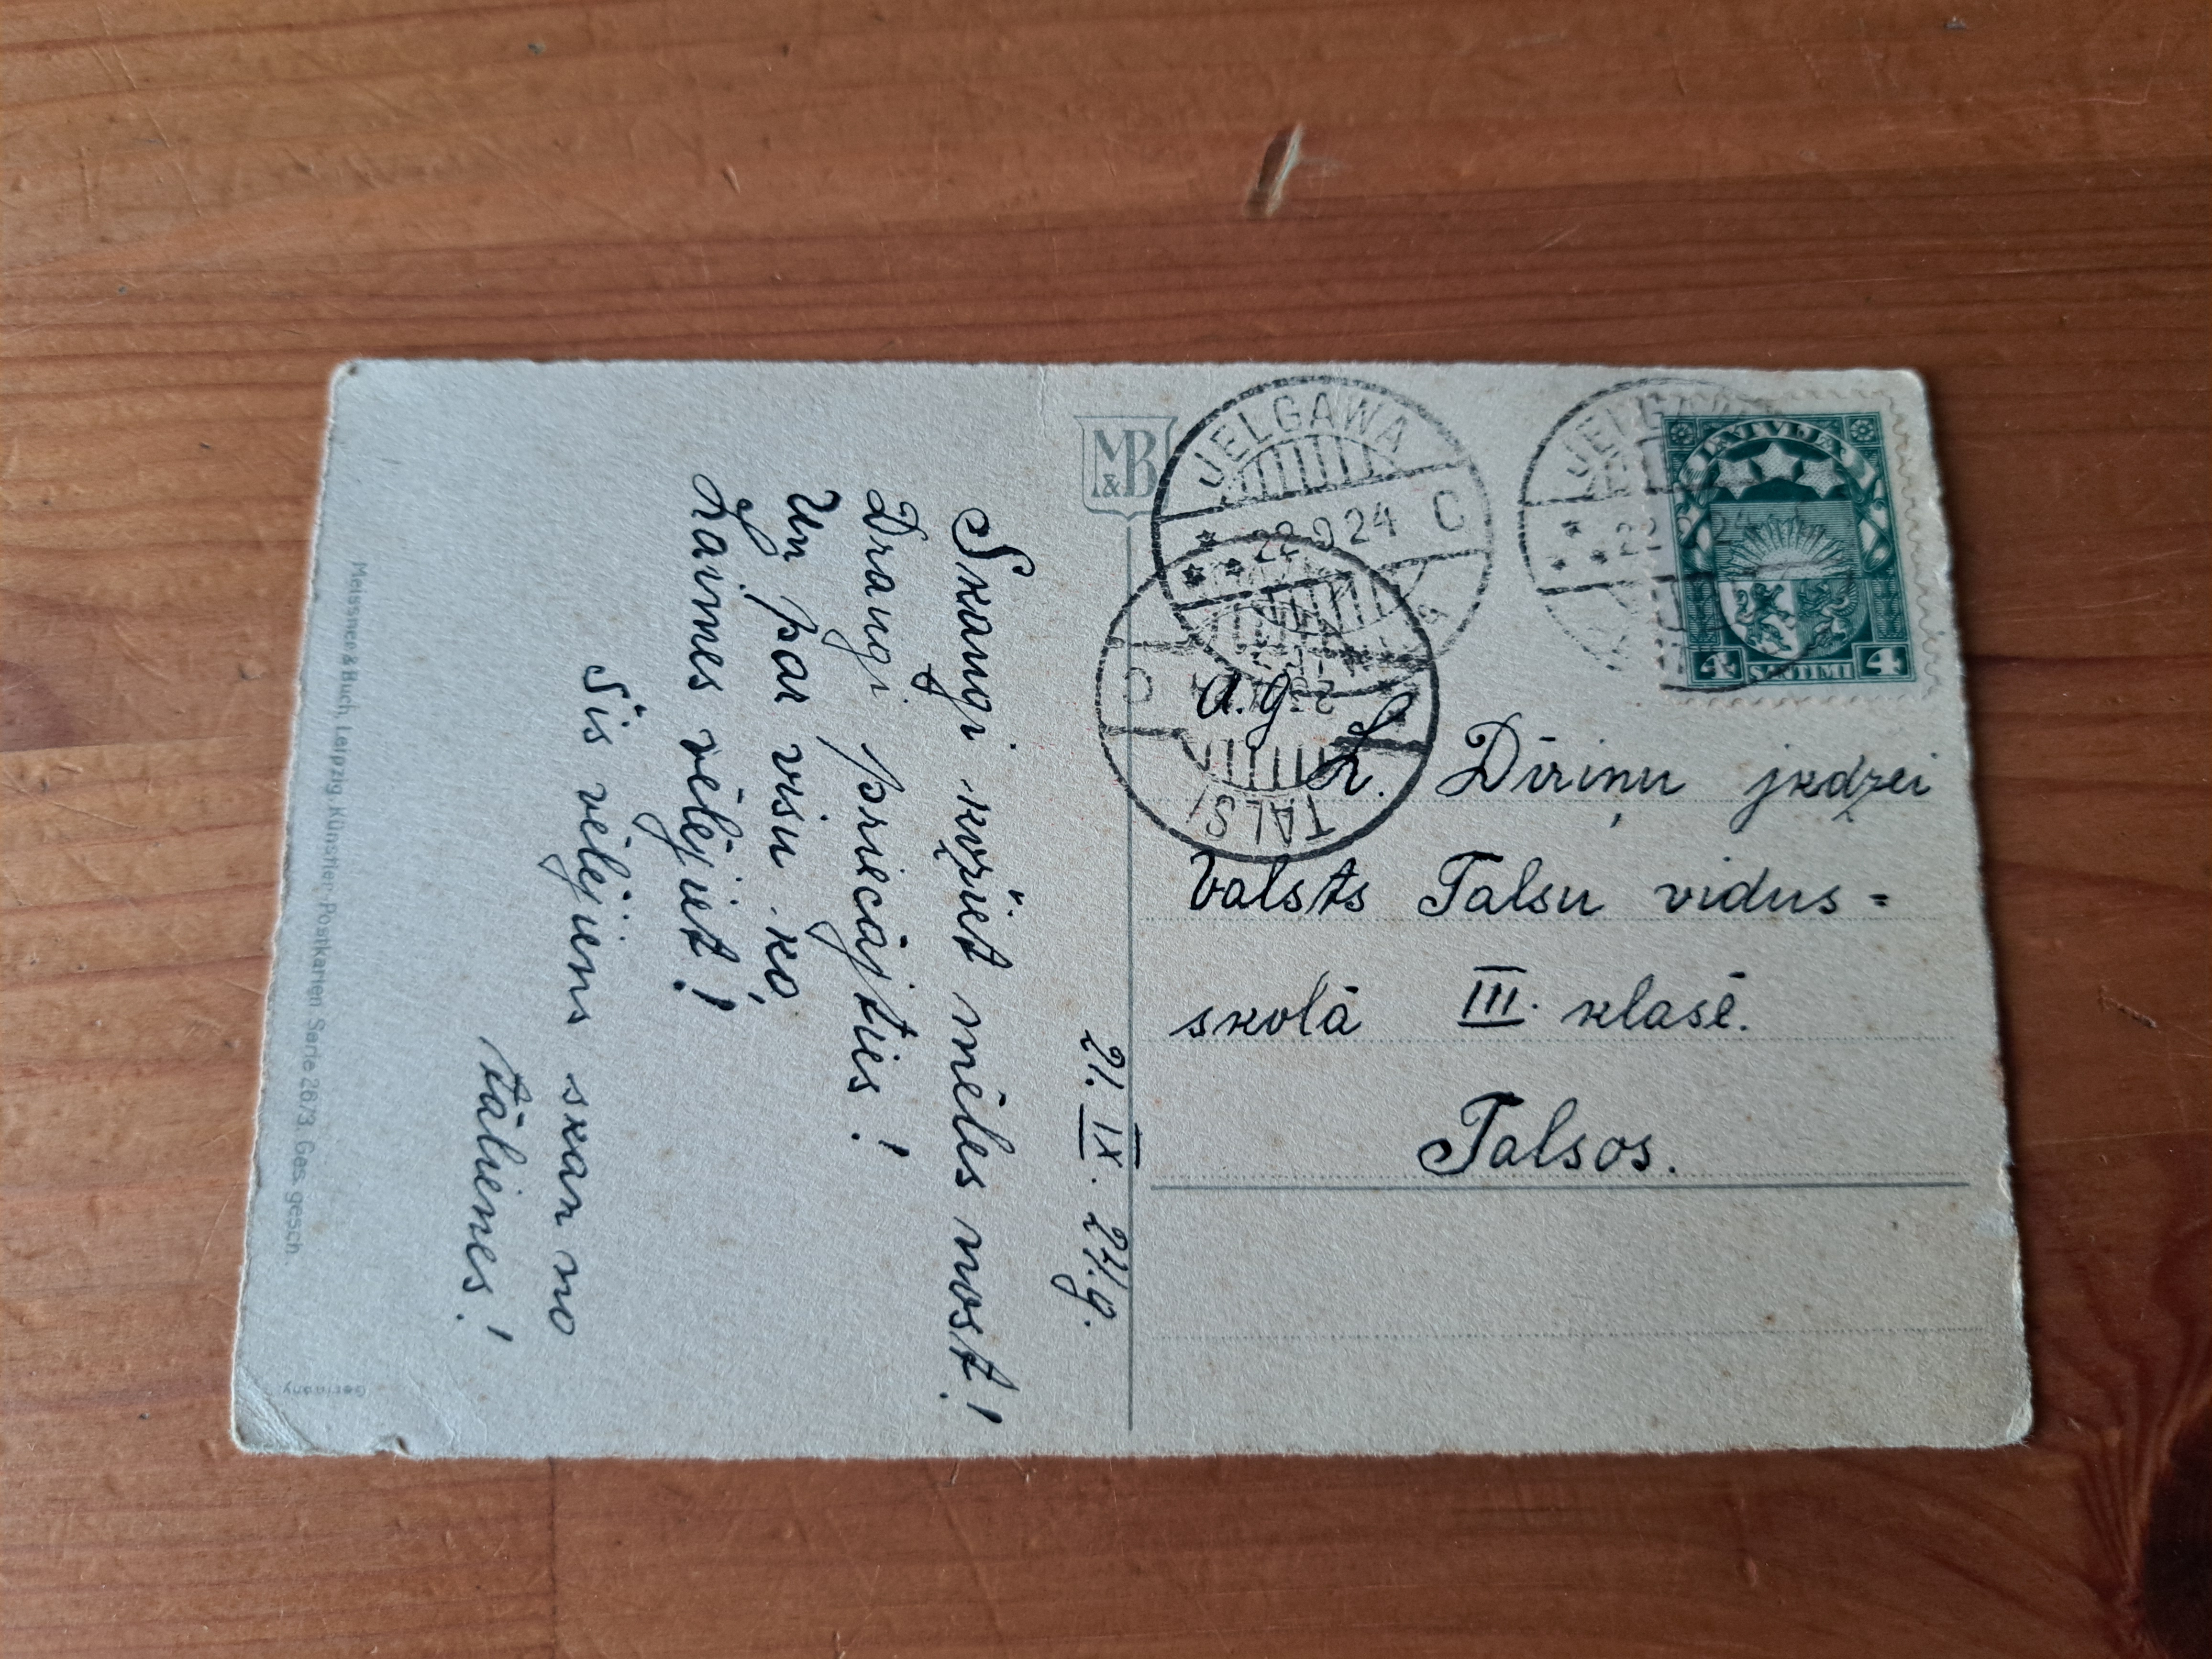 21. IX. 24.g.
Skangi kožiet mēles nost!
Draugi priecājties!
Un par visu ko
Laimes vēlējiet!
Šis vēlējiens skan no
tālienes!
Meissner & Buch, Leipzig, Künstler-Postkarten Serie 2673. Ges. gesch.
Germany
M&B
JELGAWA
22 9 24 C
JELGAWA
22 9 24
LATVIJA
4 SANTIMI 4
TALSI
C
a.g.
L. Dīriņu jkdzei
Valsts Talsu vidus=
skolā III. klasē.
Talsos.